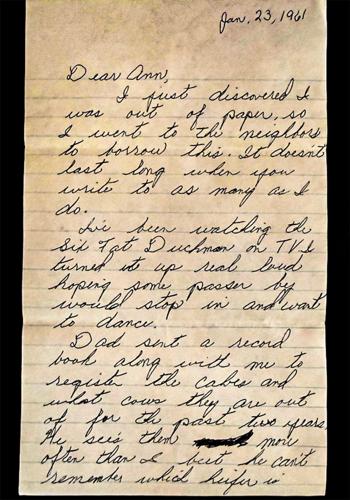 Jan. 23, 1961
Dear Ann,
I just discovered I
was out of paper, so
I went to the neighbors
to borrow this. It doesn't
last long when you
write to as many as I
do.
I've been watching the
Six Fat Duchman on TV. I
turned it up real loud
hoping some passer by
would stop in and want
to dance.
Dad sent a record
book along with me to
register the calves and
what cows they are out
of for the past two years.
He sees them more
often than I but he can't
remember which heifer is